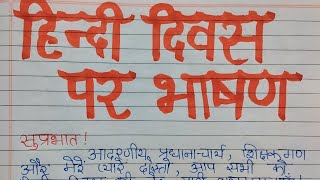 हिन्दी दिवस
पर भाषण
सुप्रभात!
आदरणीय प्रधानाचार्य, शिक्षकगण
और मेरे प्यारे दोस्तों, आप सभी को